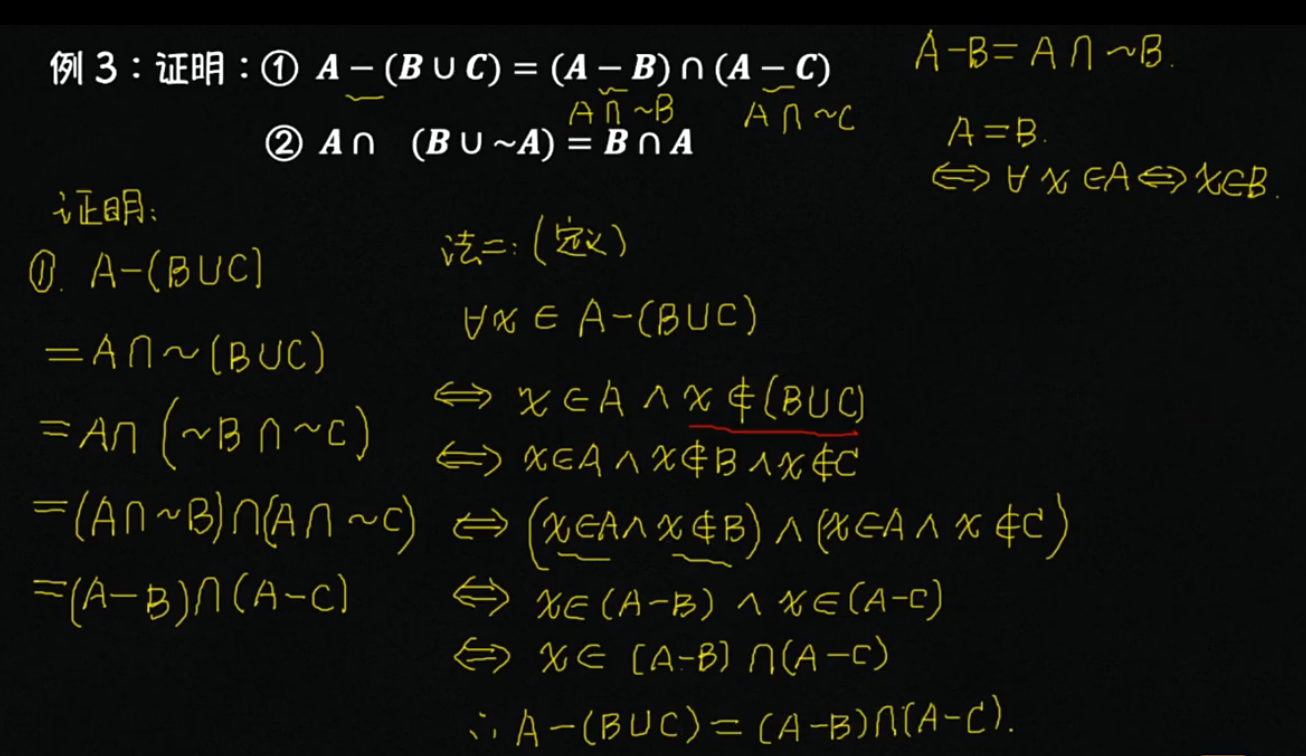 例 3：证明：① A − (B ∪ C) = (A − B) ∩ (A − C)
A ∩ ~B
A ∩ ~C
② A ∩ (B ∪ ~A) = B ∩ A
A-B= A ∩ ~B.
A=B.
⟺ ∀ x ∈A ⟺ x∈B.
证明:
①. A-(B∪C)
=A∩~(B∪C)
=A∩ (~B ∩ ~C)
=(A∩~B)∩(A∩ ~C)
=(A-B)∩(A-C)
法二:(定义)
∀x ∈ A-(B∪C)
⟺ x ∈A ∧ x ∉(B∪C)
⟺ x∈A ∧ x∉B ∧ x∉C
⟺ (x∈A ∧ x∉B) ∧ (x∈A ∧ x ∉C)
⟺ x∈(A-B) ∧ x∈(A-C)
⟺ x∈ (A-B) ∩(A-C)
∴ A-(B∪C)= (A-B)∩(A-C).